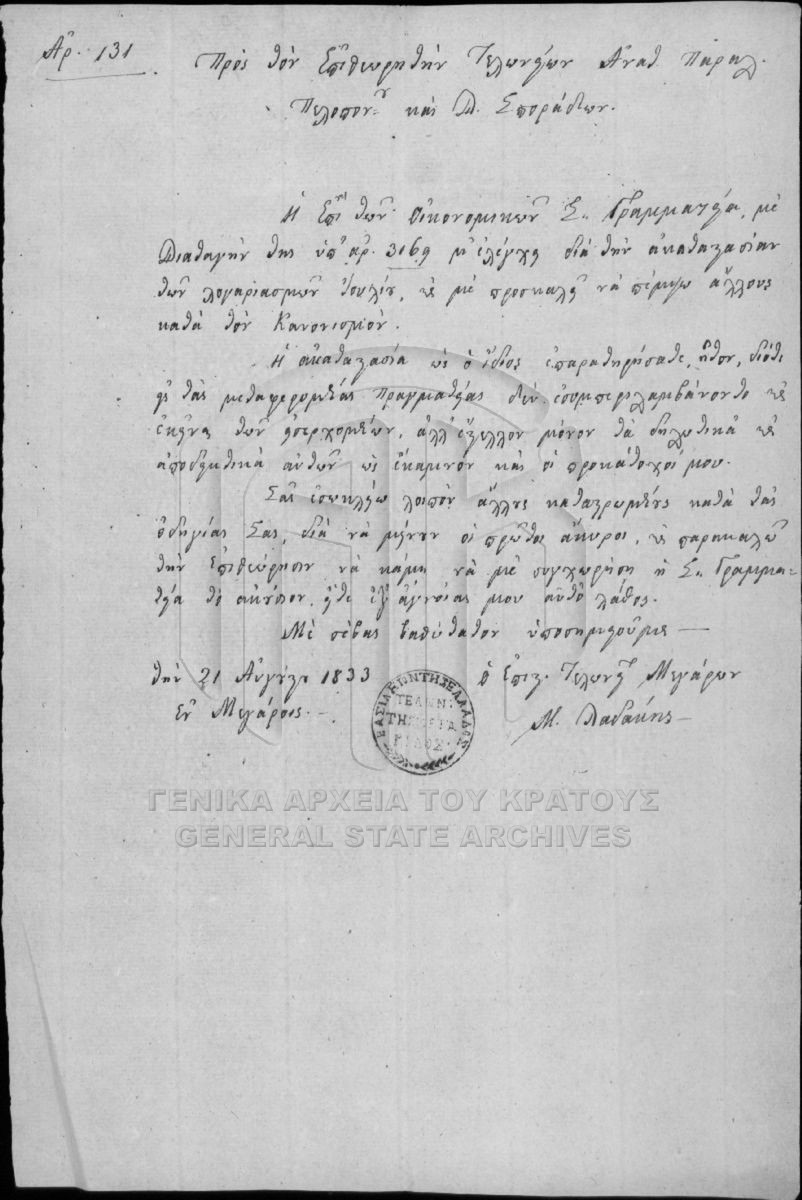 Ἀρ. 131
Πρὸς τὸν Ἐπιθεωρητὴν Τελωνείων Ἀνατ. Παραλ.
Πελοπον.ου καὶ Δ. Σποράδων.
Ἡ Ἐπὶ τῶν Οἰκονομικῶν Σ. Γραμματεία, μὲ
Διαταγήν της ὑπ' ἀρ. 3169 μ' ἐλέγχει διὰ τὴν ἀκαταστασίαν
τῶν λογαριασμῶν Ἰουλίου, καὶ μὲ προσκαλεῖ νὰ πέμψω ἄλλους
κατὰ τὸν Κανονισμόν.
Ἡ ἀκαταστασία ὡς ὁ ἴδιος ἐπαρατηρήσατε, ἦτον, διότι
εἰς τὰς μεταφερομένας πραγματείας δὲν ἐσυμπεριλαμβάνοντο καὶ
ἐκεῖναι τῶν εἰσερχομένων, ἀλλ' ἔστελλον μόνον τὰ δηλωτικὰ καὶ
ἀποδεικτικὰ αὐτῶν ὡς ἔκαμνον καὶ οἱ προκάτοχοί μου.
Σᾶς ἐσωκλείω λοιπὸν ἄλλους κατεστρωμένους κατὰ τὰς
ὁδηγίας Σας, διὰ νὰ μείνουν οἱ πρῶτοι ἄκυροι, καὶ παρακαλῶ
τὴν Ἐπιθεώρησιν νὰ κάμῃ νὰ μὲ συγχωρήσῃ ἡ Σ. Γραμμα-
τεία τὸ ἀκούσιον, εἴτε ἐξ ἀγνοίας μου αὐτὸ λάθος.
Μὲ σέβας βαθύτατον ὑποσημειοῦμαι
τὴν 21 Αὐγούστου 1833 ὁ Ἐπιστ. Τελώνης Μεγάρων
Ἐν Μεγάροις. Μ. Λαδάκης
ΒΑΣΙΛΕΙΟΝ ΤΗΣ ΕΛΛΑΔΟΣ
ΓΕΝΙΚΑ ΑΡΧΕΙΑ ΤΟΥ ΚΡΑΤΟΥΣ
GENERAL STATE ARCHIVES